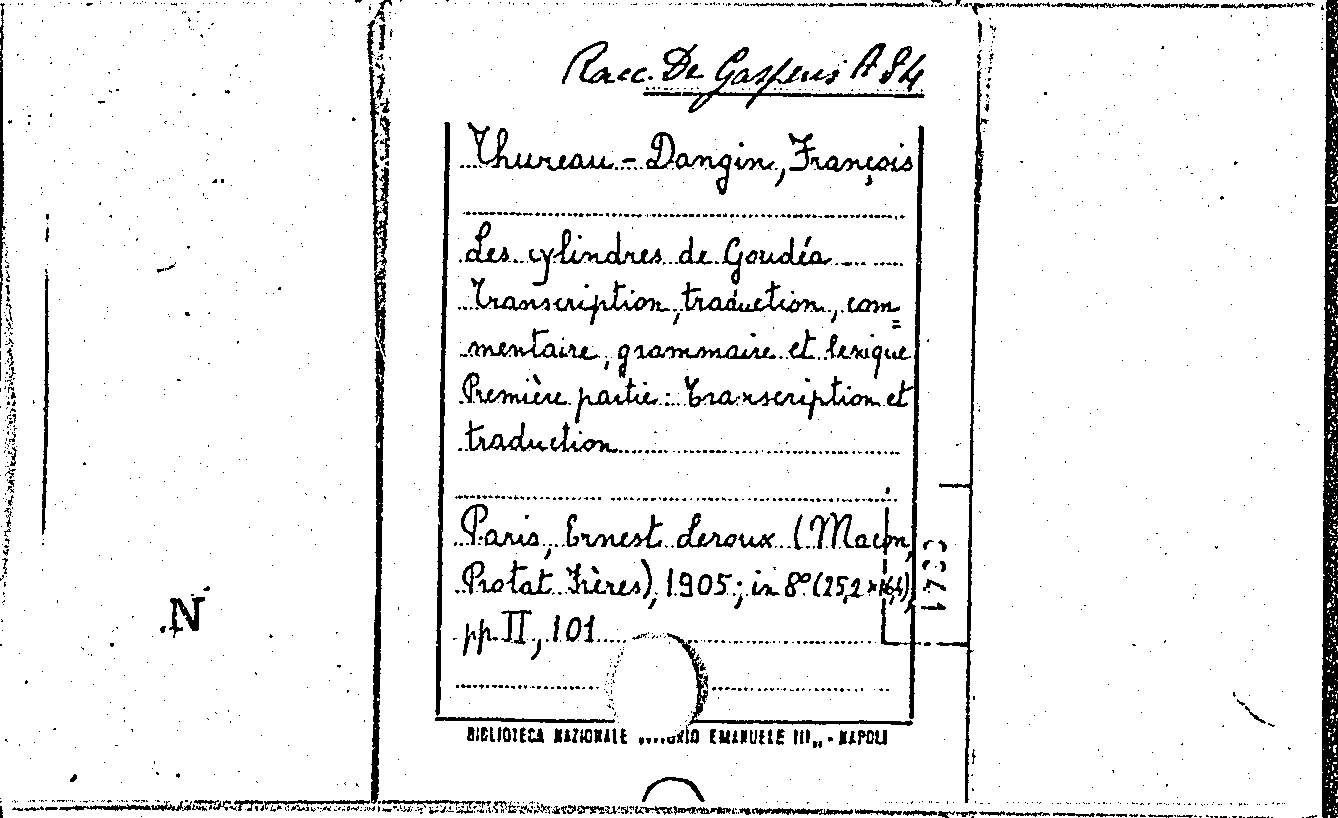 Racc. De Gasperis A 84
Thureau-Dangin, François
Les cylindres de Goudéa
Transcription, traduction, com=
mentaire, grammaire et lexique
Première partie: Transcription et
traduction
Paris, Ernest Leroux (Macon,
Protat Frères), 1905; in 8° (25,2×16,4),
pp. II, 101
N
BIBLIOTECA NAZIONALE „VITTORIO EMANUELE III„ - NAPOLI